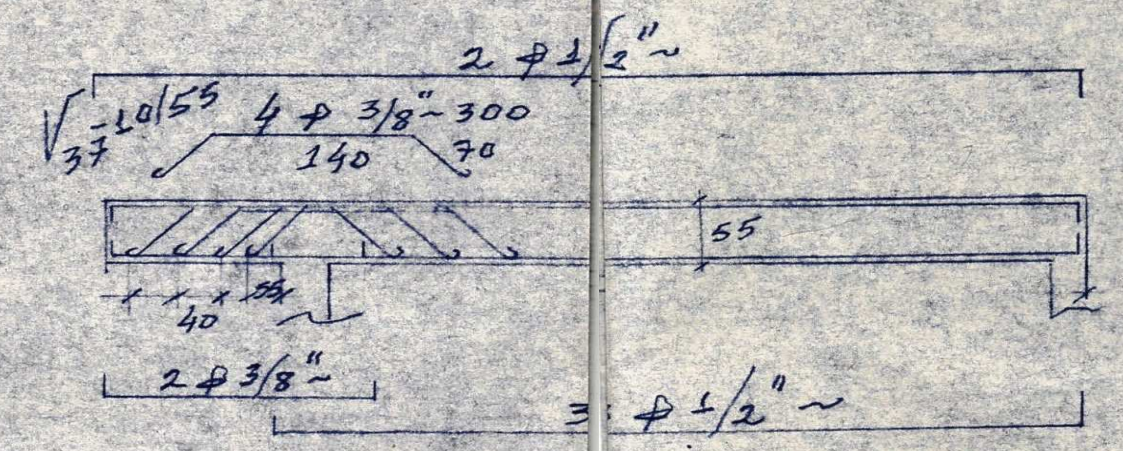 2 ϕ 1/2" ~
V37 -10/55
4 ϕ 3/8" ~ 300
140 70
55
55
40
2 ϕ 3/8" ~
3 ϕ 1/2" ~